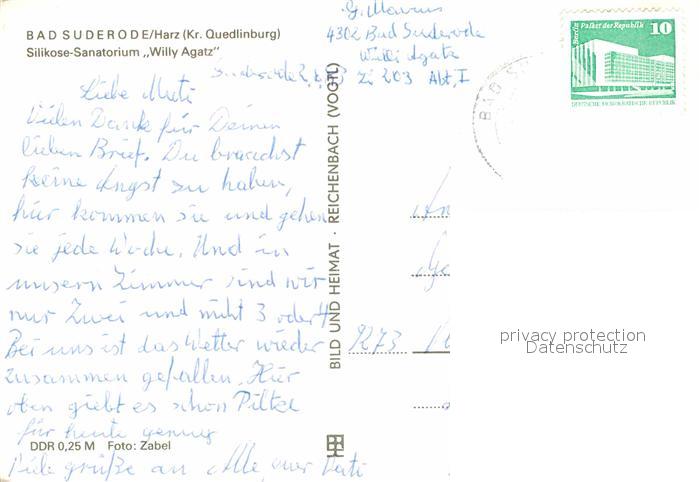 BAD SUDERODE/Harz (Kr. Quedlinburg)
Silikose-Sanatorium „Willy Agatz"
4302 Bad Suderode
Willi Agatz
Zi 203 Abt. I
Berlin Palast der Republik 10
DEUTSCHE DEMOKRATISCHE REPUBLIK
BAD S
Suderode 2.
Liebe Muti
Vielen Dank für Deinen
lieben Brief. Du brauchst
keine Angst zu haben,
hier kommen sie und gehen
sie jede Woche. Und in
unsern Zimmer sind wir
nur Zwei und nicht 3 oder 4
Bei uns ist das Wetter wieder
zusammen gefallen. Hier
oben giebt es schon Piltze
für heute genug
Viele grüße an Alle, euer Vati
BILD UND HEIMAT · REICHENBACH (VOGTL)
An
9273
privacy protection
Datenschutz
DDR 0,25 M Foto: Zabel